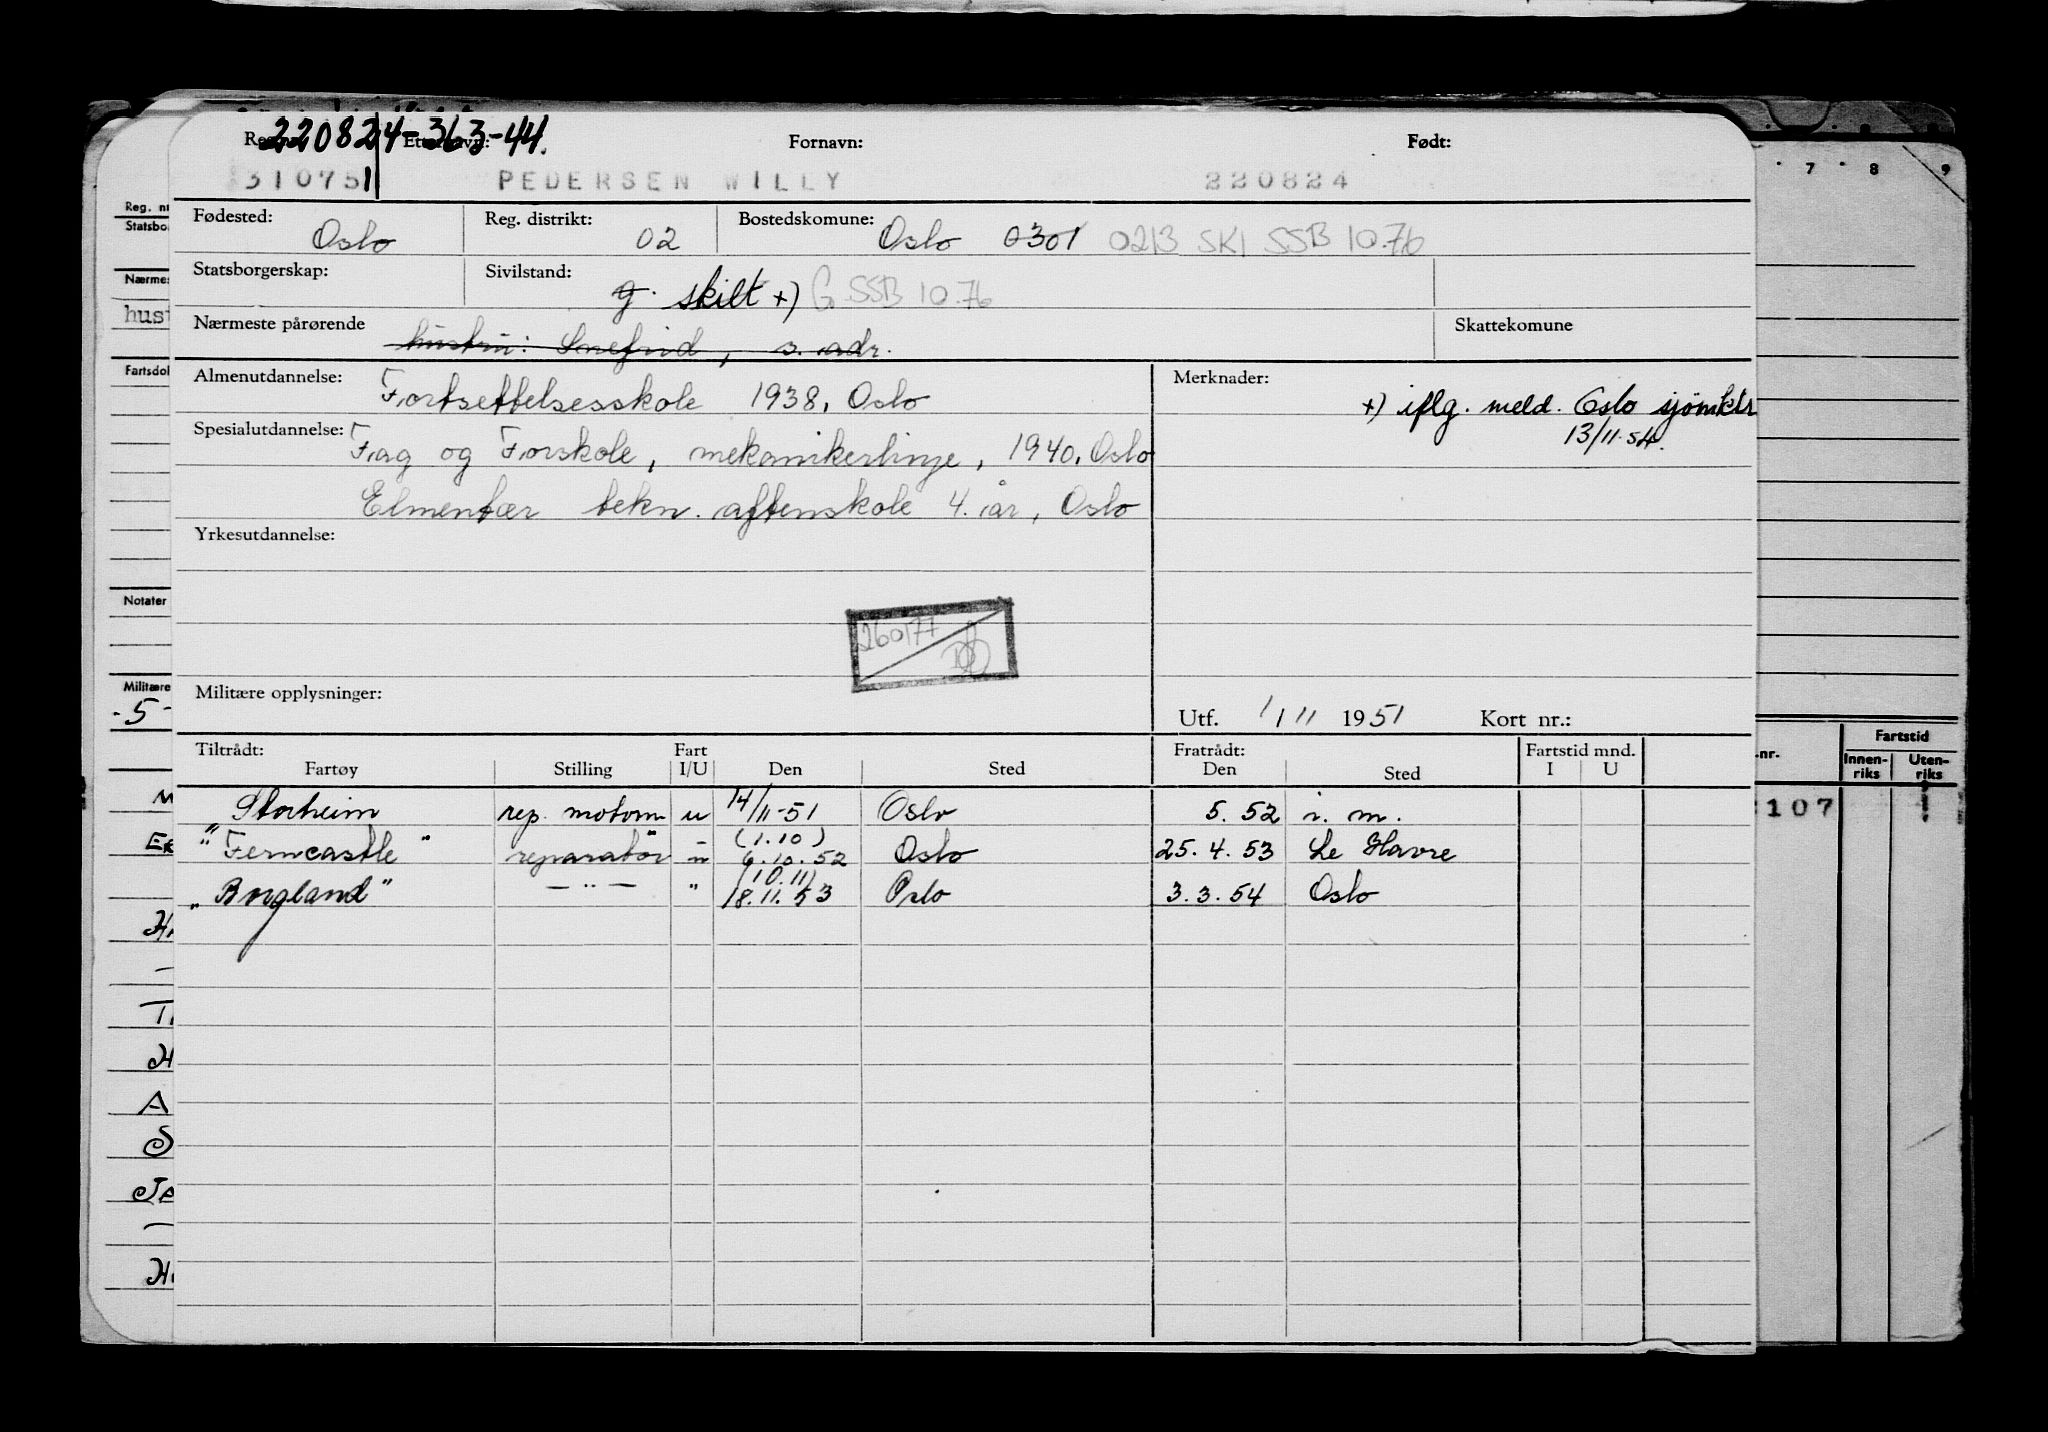 220824-363-44.
Fornavn: Født:
310751 PEDERSEN WILLY 220824
Fødested: Oslo Reg. distrikt: 02 Bostedskomune: Oslo 0301 0213 SKI SSB 10.76
Statsborgerskap: Sivilstand: g. skilt +) G SSB 10.76
Nærmeste pårørende hustru: Snefrid, s. adr. Skattekomune
Almenutdannelse: Fortsettelsesskole 1938, Oslo Merknader: +) iflg. meld. Oslo sjömktr
13/11.54.
Spesialutdannelse: Fag og Forskole, mekanikerlinje, 1940, Oslo
Elmentær tekn. aftenskole 4. år, Oslo
Yrkesutdannelse:
260177
Militære opplysninger: Utf. 1/11 1951 Kort nr.:
Tiltrådt: Fart Fratrådt: Fartstid mnd.
Fartøy Stilling I/U Den Sted Den Sted I U
Storheim rep. motorm u 14/11-51 Oslo 5. 52 i. m.
(1.10)
"Ferncastle" reparatør u 6.10.52 Oslo 25. 4. 53 Le Havre
(10.11)
"Borgland" — " — " 18.11.53 Oslo 3. 3. 54 Oslo
Reg. nr
Statsbo
Nærmes
hust
Fartsdol
Notater
Militære
5
M
EK
H
T
H
A
S
JA
H
7 8 9
-nr. Fartstid
Innen-riks Uten-riks
107